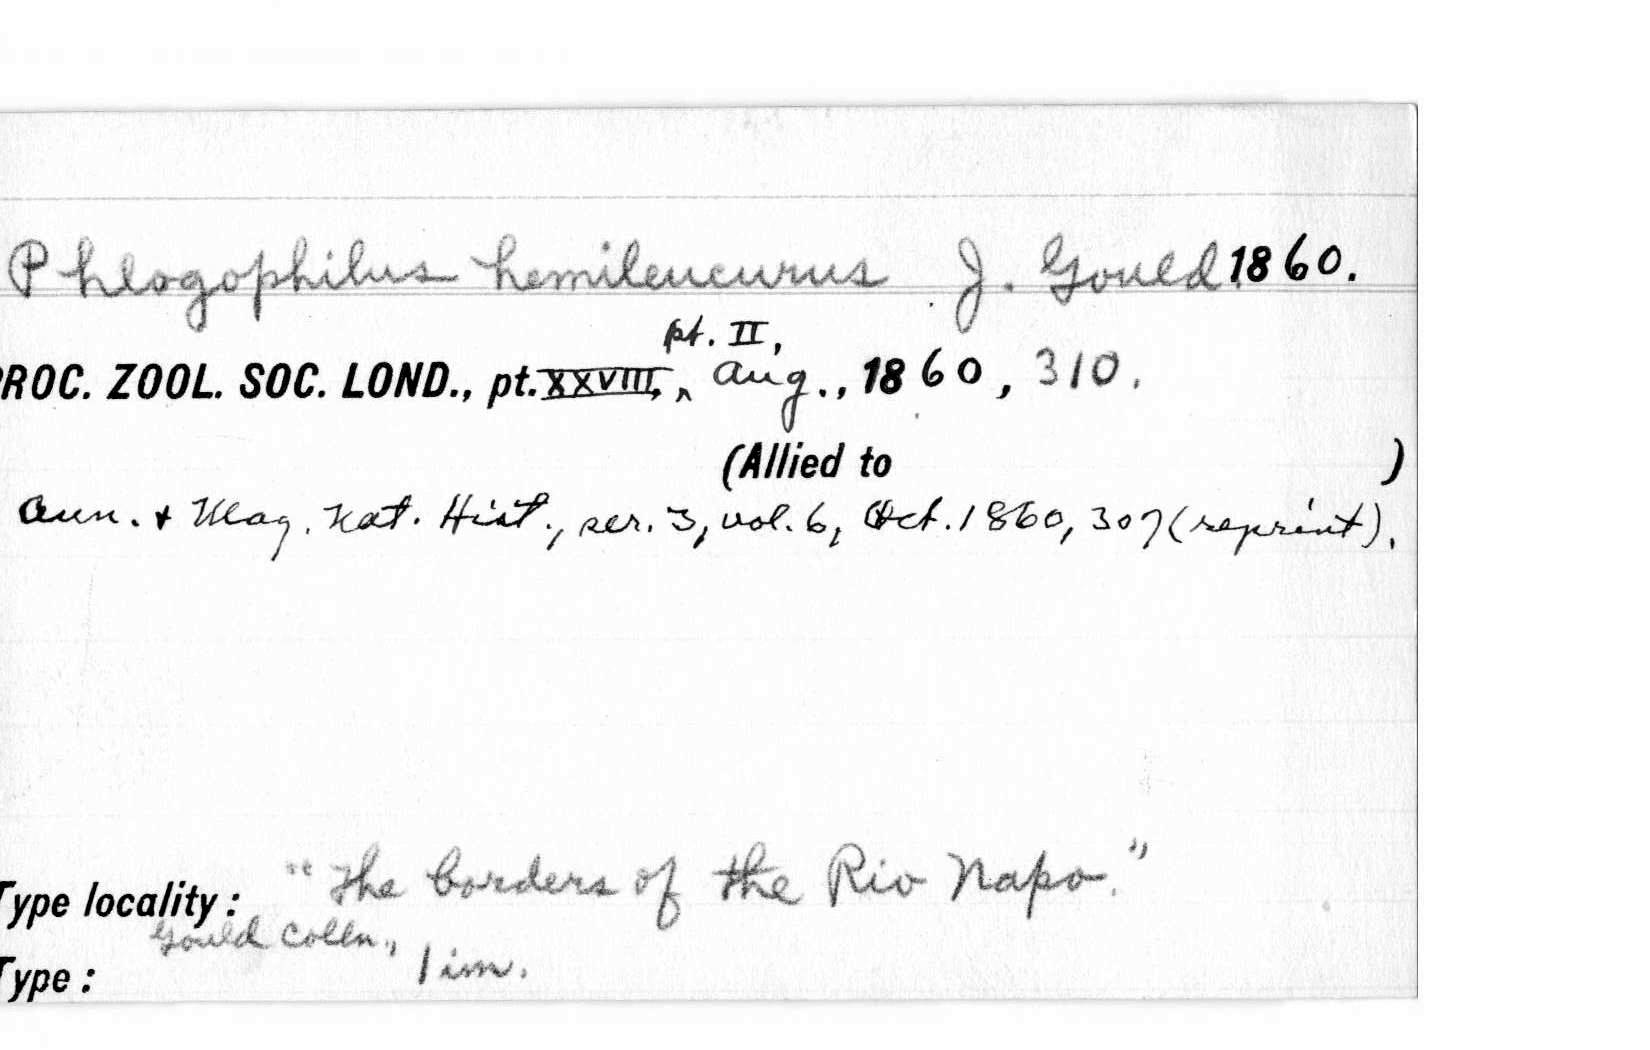 Phlogophilus hemileucurus J. Gould 1860.
pt. II,
PROC. ZOOL. SOC. LOND., pt. XXVIII, ^ Aug., 1860, 310.
(Allied to )
Ann. + Mag. Nat. Hist., ser. 3, vol. 6, Oct. 1860, 307 (reprint).
Type locality: "The borders of the Rio Napo."
Gould Colln., 1 im.
Type: